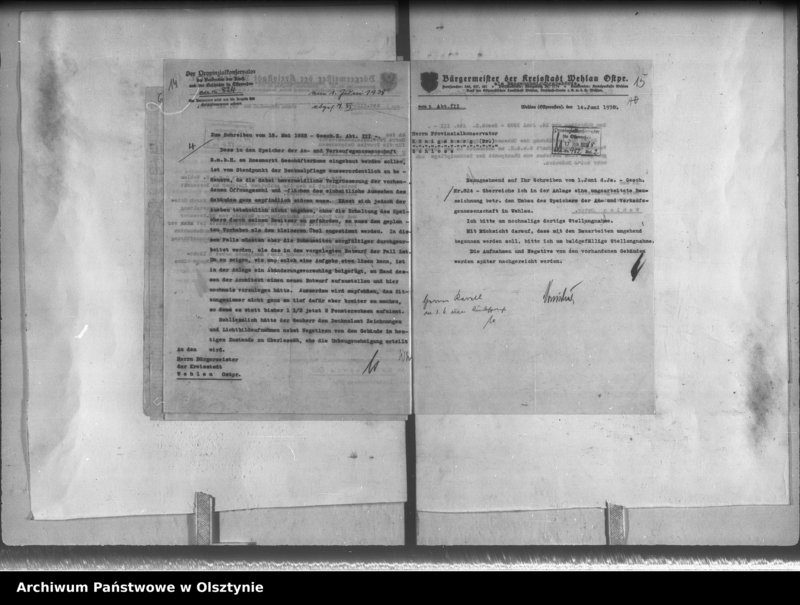 14
Der Provinzialkonservator
der Denkmäler der Kunst
und der Geschichte in Ostpreußen
den 1. Juni 1938
Zum Schreiben vom 18. Mai 1938 - Gesch.Z. Abt. III -.
Dass in den Speicher der An- und Verkaufsgenossenschaft
G.m.b.H. am Rossmarkt Geschäftsräume eingebaut werden sollen,
ist vom Standpunkt der Denkmalpflege ausserordentlich zu be-
dauern, da die dabei unvermeidliche Vergrösserung der vorhan-
denen Öffnungszahl und -flächen das einheitliche Aussehen des
Gebäudes ganz empfindlich stören muss. Lässt sich jedoch der
Ausbau tatsächlich nicht umgehen, ohne die Erhaltung des Spei-
chers durch seinen Besitzer zu gefährden, so muss dem geplan-
ten Vorhaben als dem kleineren Übel zugestimmt werden. In die-
sem Falle müssten aber die Bauarbeiten sorgfältiger durchgear-
beitet werden, als das in dem vorgelegten Entwurf der Fall ist.
Um zu zeigen, wie man solch eine Aufgabe etwa lösen kann, ist
in der Anlage ein Abänderungsvorschlag beigefügt, an Hand des-
sen der Architekt einen neuen Entwurf aufzustellen und hier
nochmals vorzulegen hätte. Ausserdem wird empfohlen, das Sit-
zungszimmer nicht ganz so tief dafür aber breiter zu machen,
so dass es statt bisher 1 1/2 jetzt 2 Fensterachsen aufnimmt.
Schliesslich hätte der Bauherr dem Denkmalamt Zeichnungen
und Lichtbildaufnahmen nebst Negativen von dem Gebäude in heu-
tigen Zustande zu überlassen, ehe die Umbaugenehmigung erteilt
wird.
An den
Herrn Bürgermeister
der Kreisstadt
Wehlau Ostpr.
15
Bürgermeister der Kreisstadt Wehlau Ostpr.
Abt. III
Wehlau (Ostpreußen), den 14. Juni 1938.
Herrn Provinzialkonservator
Königsberg (Pr.)
Schloss
Bezugnehmend auf Ihr Schreiben vom 1. Juni d.Js. - Gesch.
Nr. 824 - überreiche ich in der Anlage eine umgearbeitete Bau-
zeichnung betr. den Umbau des Speichers der Abs-und Verkaufs-
genossenschaft in Wehlau.
Ich bitte um nochmalige dortige Stellungnahme.
Mit Rücksicht darauf, dass mit den Bauarbeiten umgehend
begonnen werden soll, bitte ich um baldgefällige Stellungnahme.
Die Aufnahmen und Negative von den vorhandenen Gebäuden
werden später nachgereicht werden.
Archiwum Państwowe w Olsztynie